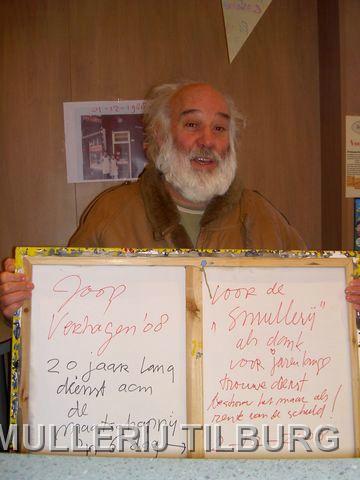 Joop
Verhagen '08
20 jaar lang
dienst aan
de
maatschappij
voor de
"Smullerij"
als dank
voor jarenlange
trouwe dienst
beschouw het maar als
rente van de schuld!
MULLERIJ TILBURG